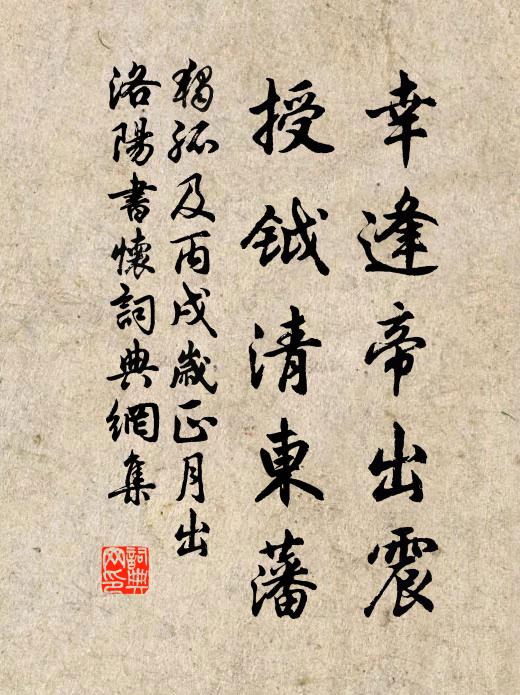 幸逢帝出震
授鉞清東藩
獨孤及丙戌歲正月出
洛陽書懷詞典網集
詞典
网印